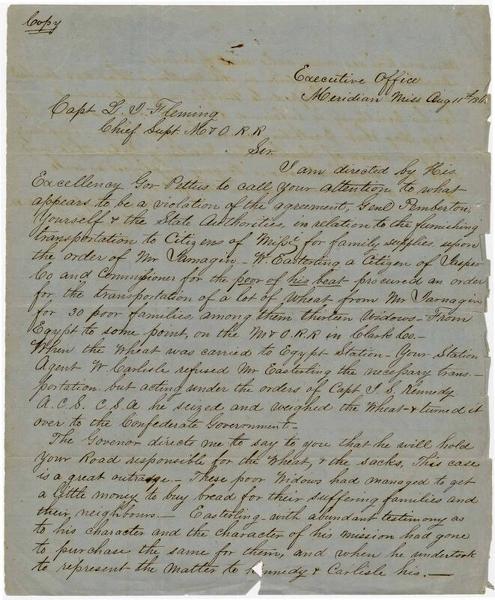 Copy
Executive Office
Meridian Miss Aug 11th
Capt L. J. Fleming
Chief Supt M & O. R R
Sir
I am directed by His
Excellency Gov Pettus to call your attention to what
appears to be a violation of the agreement, Genl Pemberton,
Yourself & the State Authorities, in relation to the furnishing
transportation to Citizens of Missi for family supplies upon
the order of Mr Yarnagin - W. Easterling a Citizen of Jasper
Co and Commissioner for the poor of his beat procured an order
for the transportation of a lot of Wheat from Mr Yarnagin
for 30 poor families among them thirteen Widows - From
Egypt to some point, on the M & O. R R in Clark Co. -
When the Wheat was carried to Egypt Station - Your Station
Agent W Carlisle refused Mr Easterling the necessary trans-
portation but acting under the orders of Capt J. S. Kennedy
A. C. S. C. S. A he seized and weighed the Wheat & turned it
over to the Confederate Government -
The Govenor directs me to say to you that he will hold
your Road responsible for the Wheat, & the sacks, This case
is a great outrage - These poor Widows had managed to get
a little money to buy bread for their suffering families and
their, neighbours - Easterling - with abundant testimony as
to his character and the character of his mission had gone
to purchase the same for them, and when he undertook
to represent the matter to Kennedy & Carlisle his. -